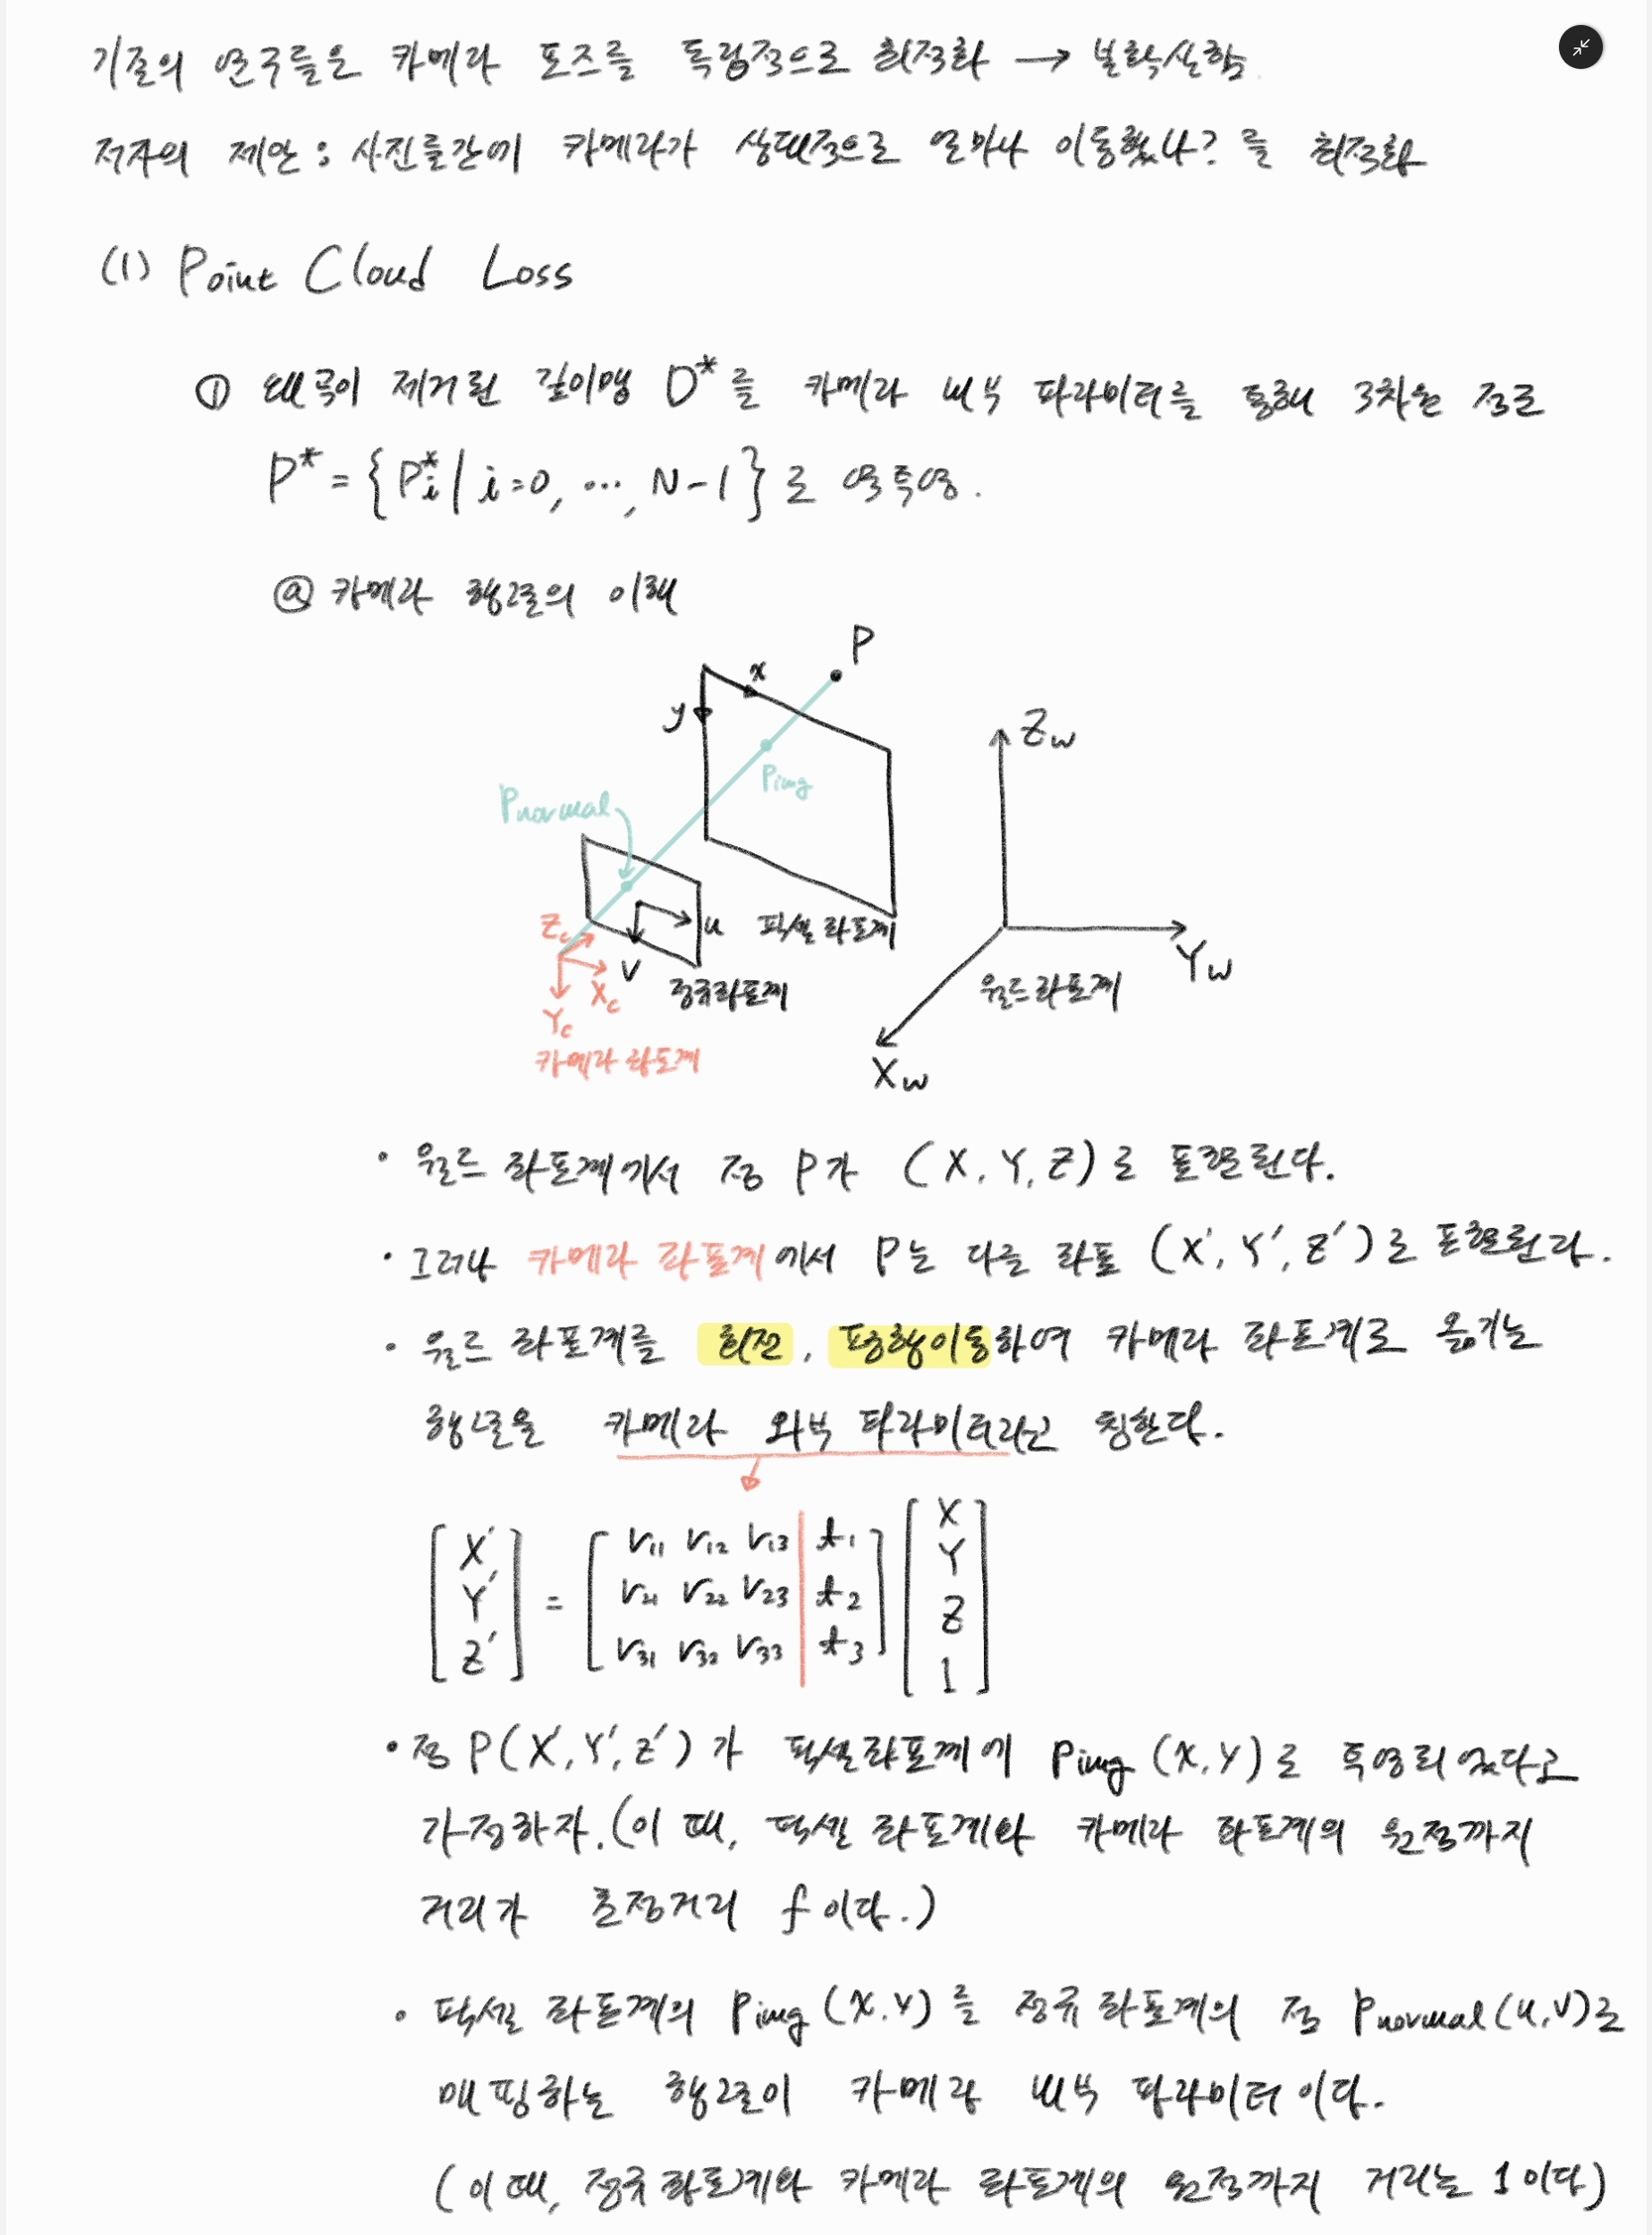 기존의 연구들은 카메라 포즈를 독립적으로 최적화 → 불확실함.
저자의 제안 : 사진들간에 카메라가 상대적으로 얼마나 이동했나? 를 최적화
(1) Point Cloud Loss
① 왜곡이 제거된 깊이맵 D* 를 카메라 내부 파라미터를 통해 3차원 점로
P* = { P*i | i=0, ..., N-1 } 로 역투영.
ⓐ 카메라 행렬의 이해
P
x
y
Pimg
Pnormal
u
v
픽셀 좌표계
정규좌표계
Zc
Xc
Yc
카메라 좌표계
Zw
Yw
Xw
월드 좌표계
· 월드 좌표계에서 점 P가 (X, Y, Z) 로 표현된다.
· 그러나 카메라 좌표계에서 P는 다른 좌표 (X', Y', Z') 로 표현된다.
· 월드 좌표계를 회전, 평행이동하여 카메라 좌표계로 옮기는
행렬을 카메라 외부 파라미터라고 칭한다.
[X' Y' Z'] = [r11 r12 r13 | t1
r21 r22 r23 | t2
r31 r32 r33 | t3] [X Y Z 1]
· 점 P(X', Y', Z') 가 픽셀좌표계에 Pimg (x, y) 로 투영되었다고
가정하자. (이 때, 픽셀 좌표계와 카메라 좌표계의 원점까지
거리가 초점거리 f 이다.)
· 픽셀 좌표계의 Pimg (x, y) 를 정규 좌표계의 점 Pnormal (u, v)로
매핑하는 행렬이 카메라 내부 파라미터 이다.
(이 때, 정규 좌표계와 카메라 좌표계의 원점까지 거리는 1 이다)